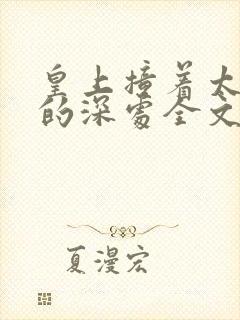 皇上撞着太
的深处全文
夏漫宏